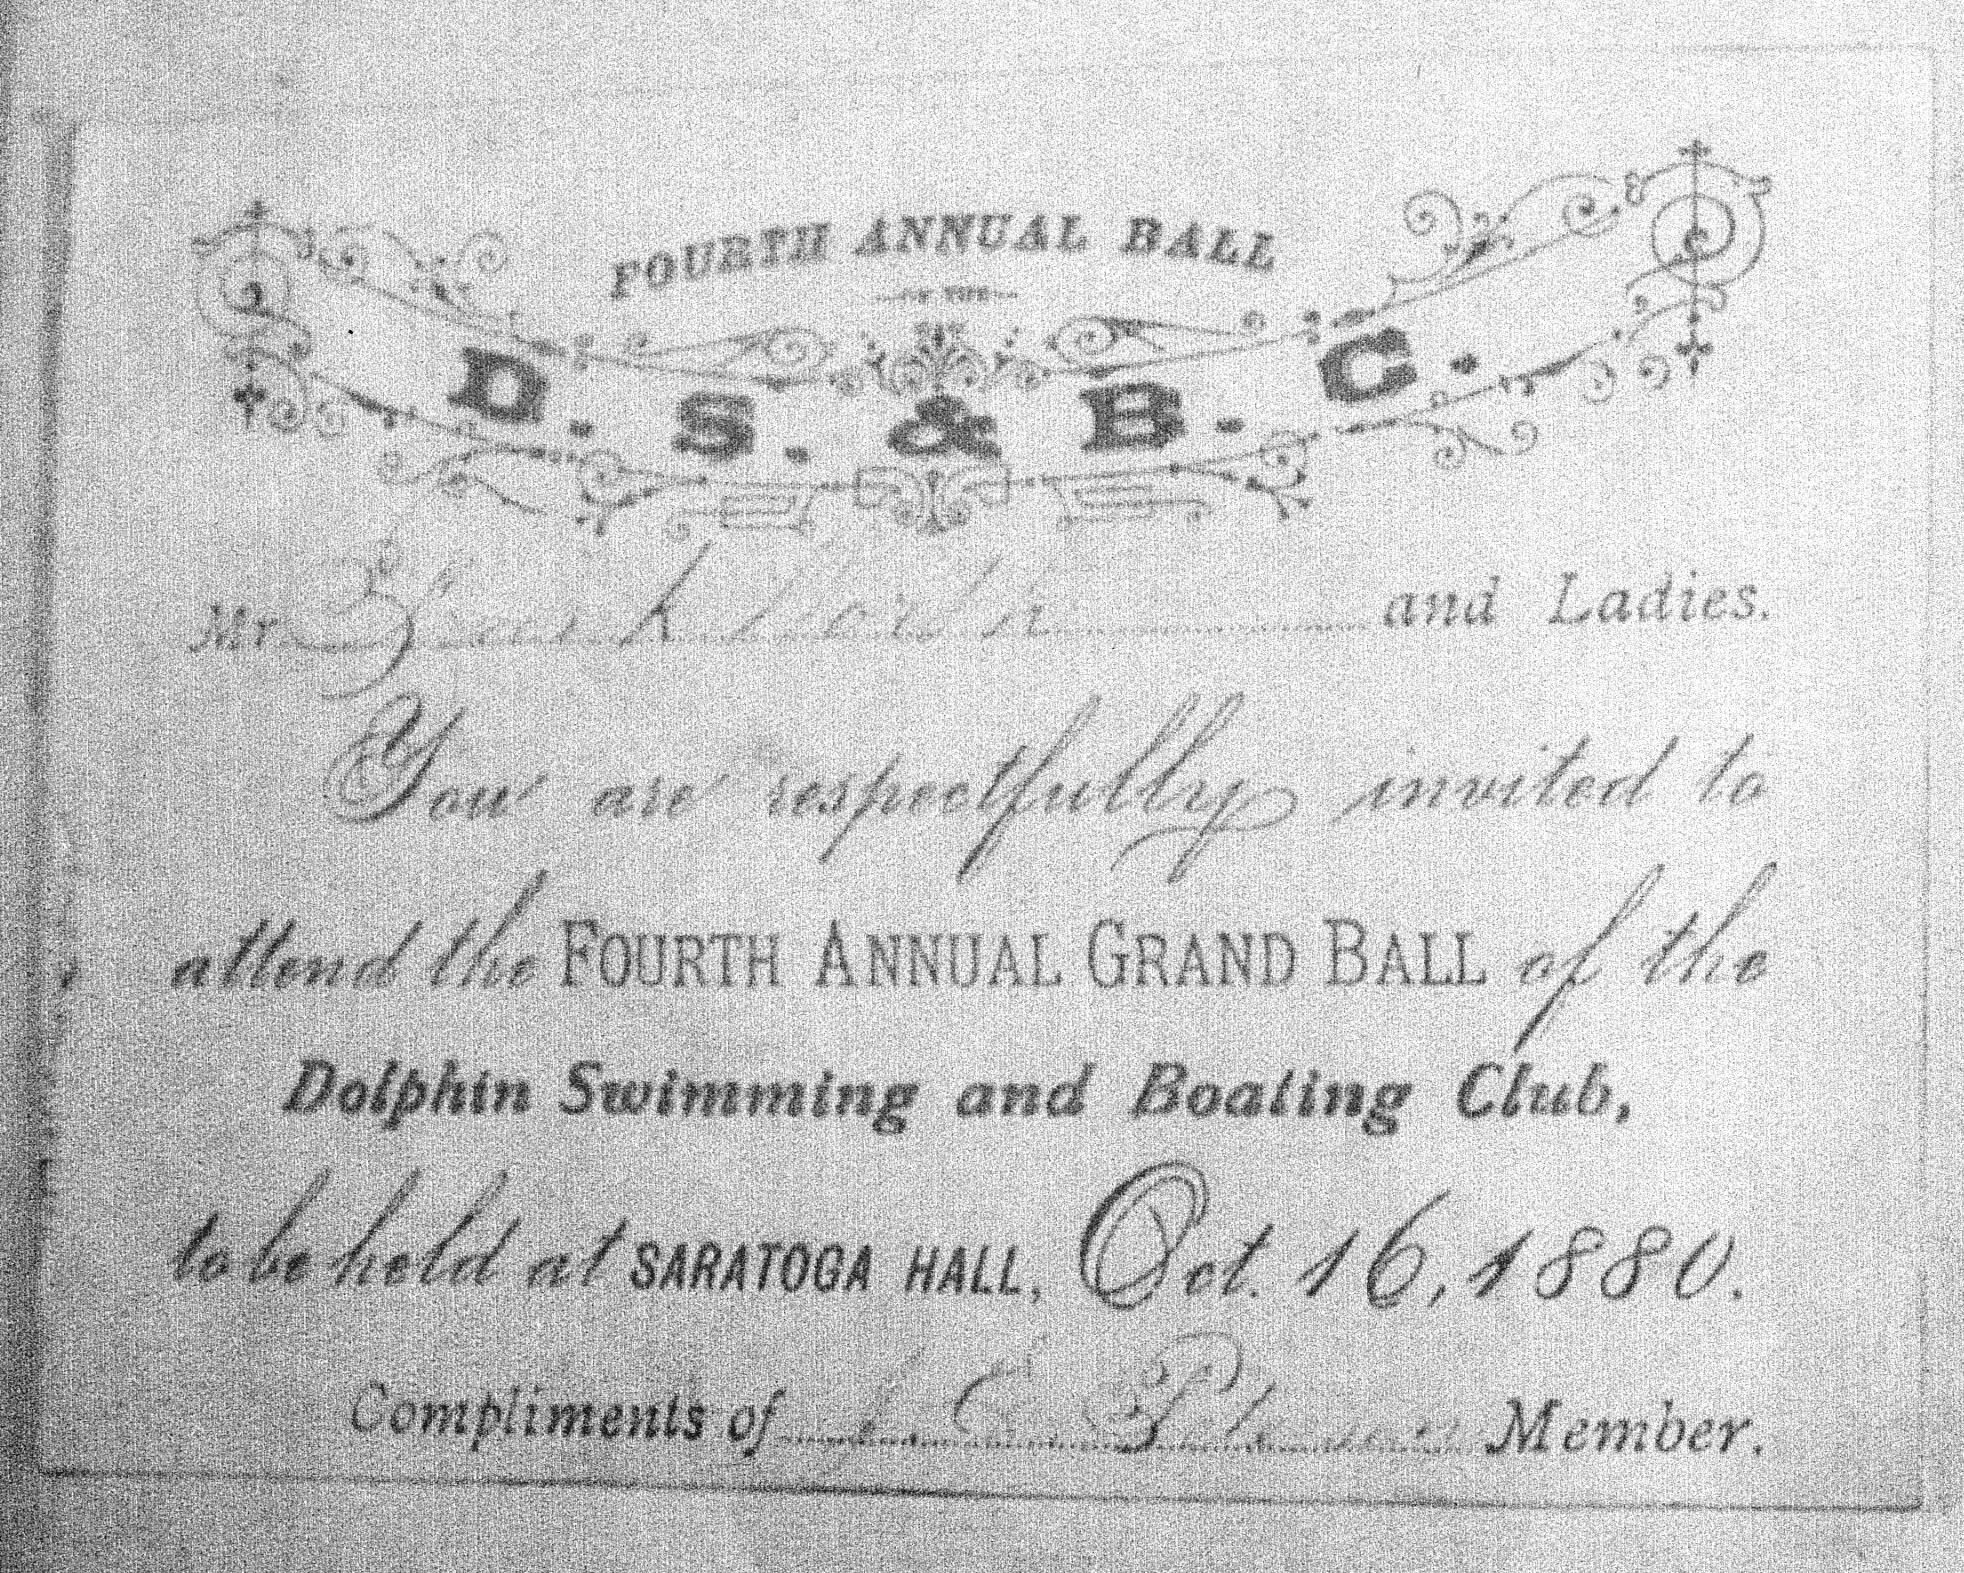 FOURTH ANNUAL BALL
OF THE
D. S. & B. C.
Mr and Ladies.
You are respectfully invited to
attend the FOURTH ANNUAL GRAND BALL of the
Dolphin Swimming and Boating Club,
to be held at SARATOGA HALL, Oct. 16, 1880.
Compliments of Member.